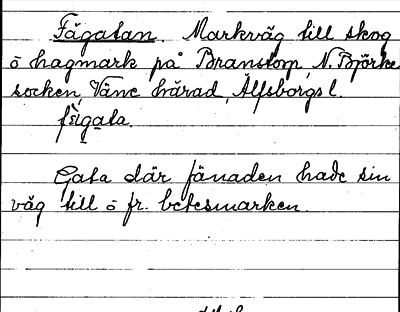 Fägatan. Markväg till skog
ō hagmark på Branstorp, N. Björke
socken, Väne härad, Älfsborgs l.
gata.
Gata där fänaden hade sin
väg till ō fr. betesmarken.